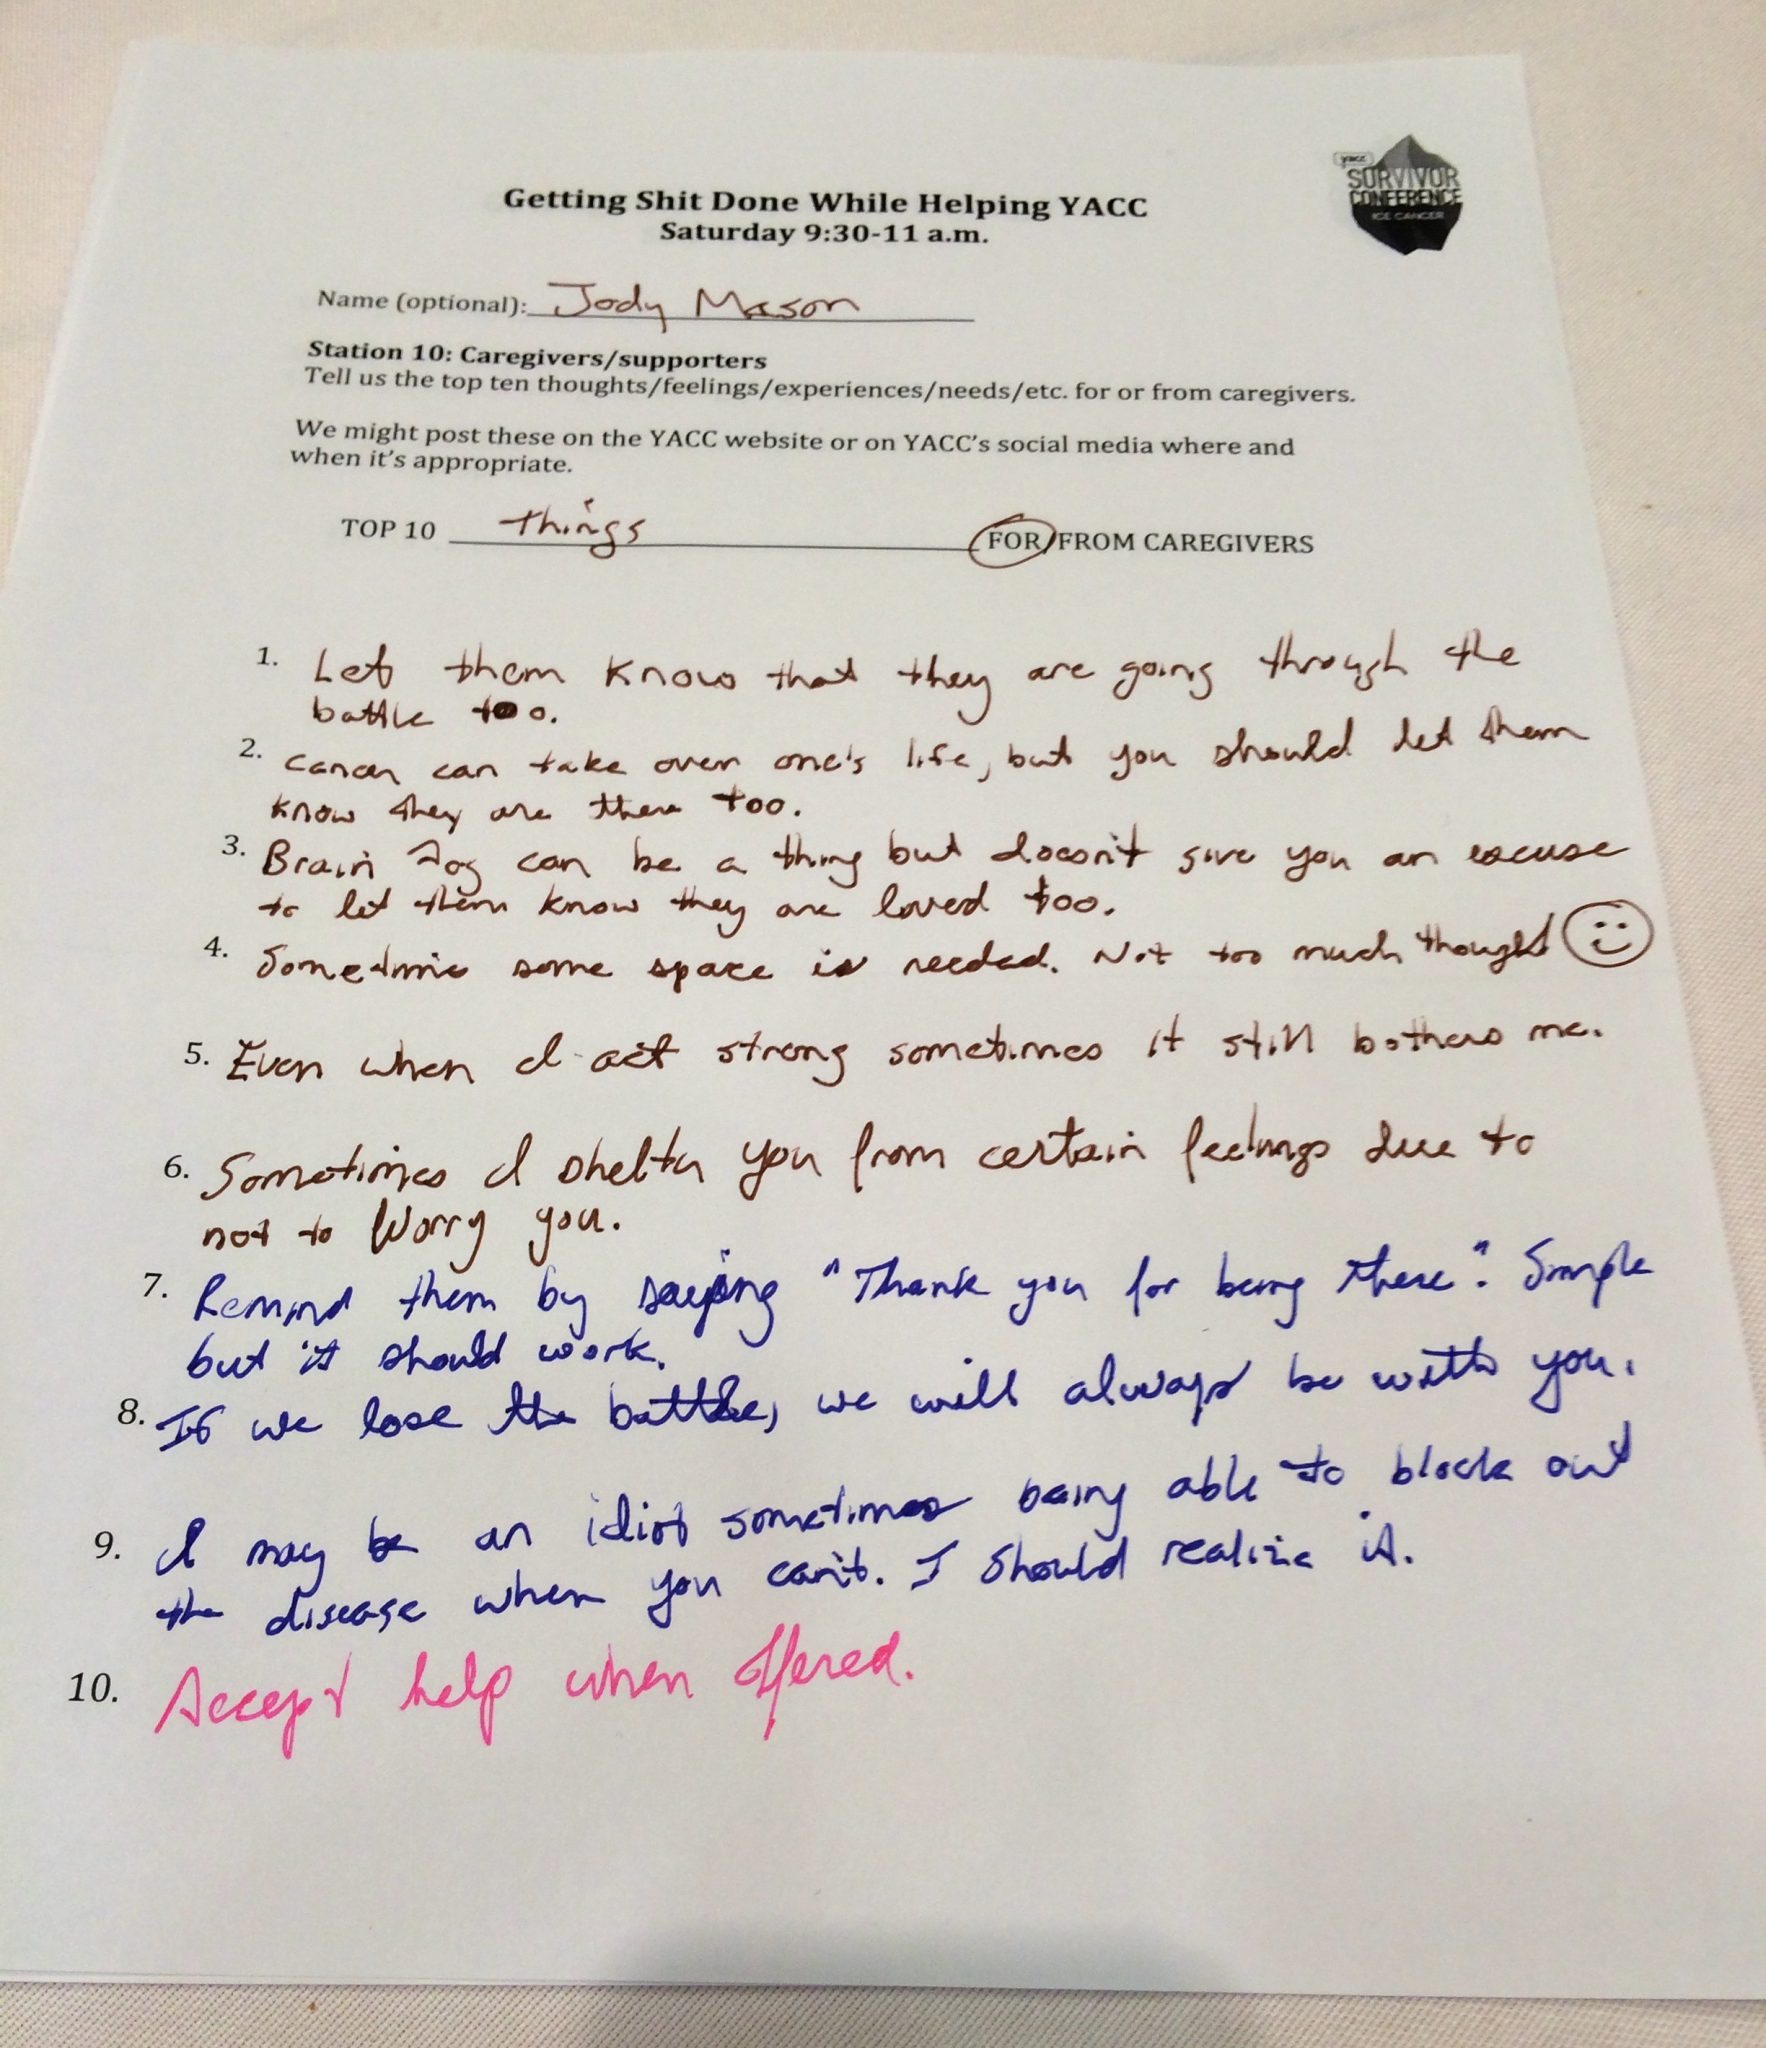 yacc
SURVIVOR
CONFERENCE
ICE CANCER
Getting Shit Done While Helping YACC
Saturday 9:30-11 a.m.
Name (optional): Jody Mason
Station 10: Caregivers/supporters
Tell us the top ten thoughts/feelings/experiences/needs/etc. for or from caregivers.
We might post these on the YACC website or on YACC's social media where and
when it's appropriate.
TOP 10 things FOR/FROM CAREGIVERS
1. Let them know that they are going through the
battle too.
2. Cancer can take over one's life, but you should let them
know they are there too.
3. Brain Fog can be a thing but doesn't give you an excuse
to let them know they are loved too.
4. Sometimes some space is needed. Not too much though!
5. Even when I act strong sometimes it still bothers me.
6. Sometimes I shelter you from certain feelings due to
not to worry you.
7. Remind them by saying "Thank you for being there". Simple
but it should work.
8. If we lose the battle, we will always be with you.
9. I may be an idiot sometimes being able to block out
the disease when you can't. I should realize it.
10. Accept help when offered.